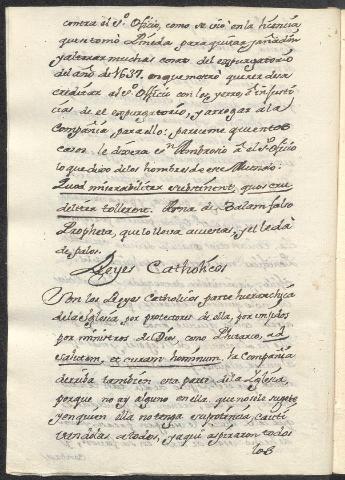 contra el S.to Officio, como se vio en la licencia
que tomò Pineda para quitar, y añadir,
y alterar muchas cosas del expurgatorio
del año de 1637. en que mostrò querer desa
creditar al S.to Officio con los yerros, è injusti
cias de el expurgatorio, y arrogar à la
Compañia, para ello: pareceme que en tal
caso le dixera S.n Ambrosio à el S.to Officio
lo que dixo de los hombres de este Mundo.
Quod miserabiliter sustinent, quos cru
deliter tollerent. Asna de Balam falso
Propheta, que lo lleva acuestas, y el le dà
de palos.
Reyes Catholicos
Son los Reyes Catholicos parte hierarchica
de la Iglesia, por protectores de ella, por
por ministros de Dios, como Plutarco, ad
salutem, et curam hominum. la Compañia
derriba tambien esta parte de la Iglesia,
porque no ay alguno en ella, que no se le sugete
y en quien ella no tenga su potencia, cauti
vandolas a todos, y aqui aspiraron todos
los